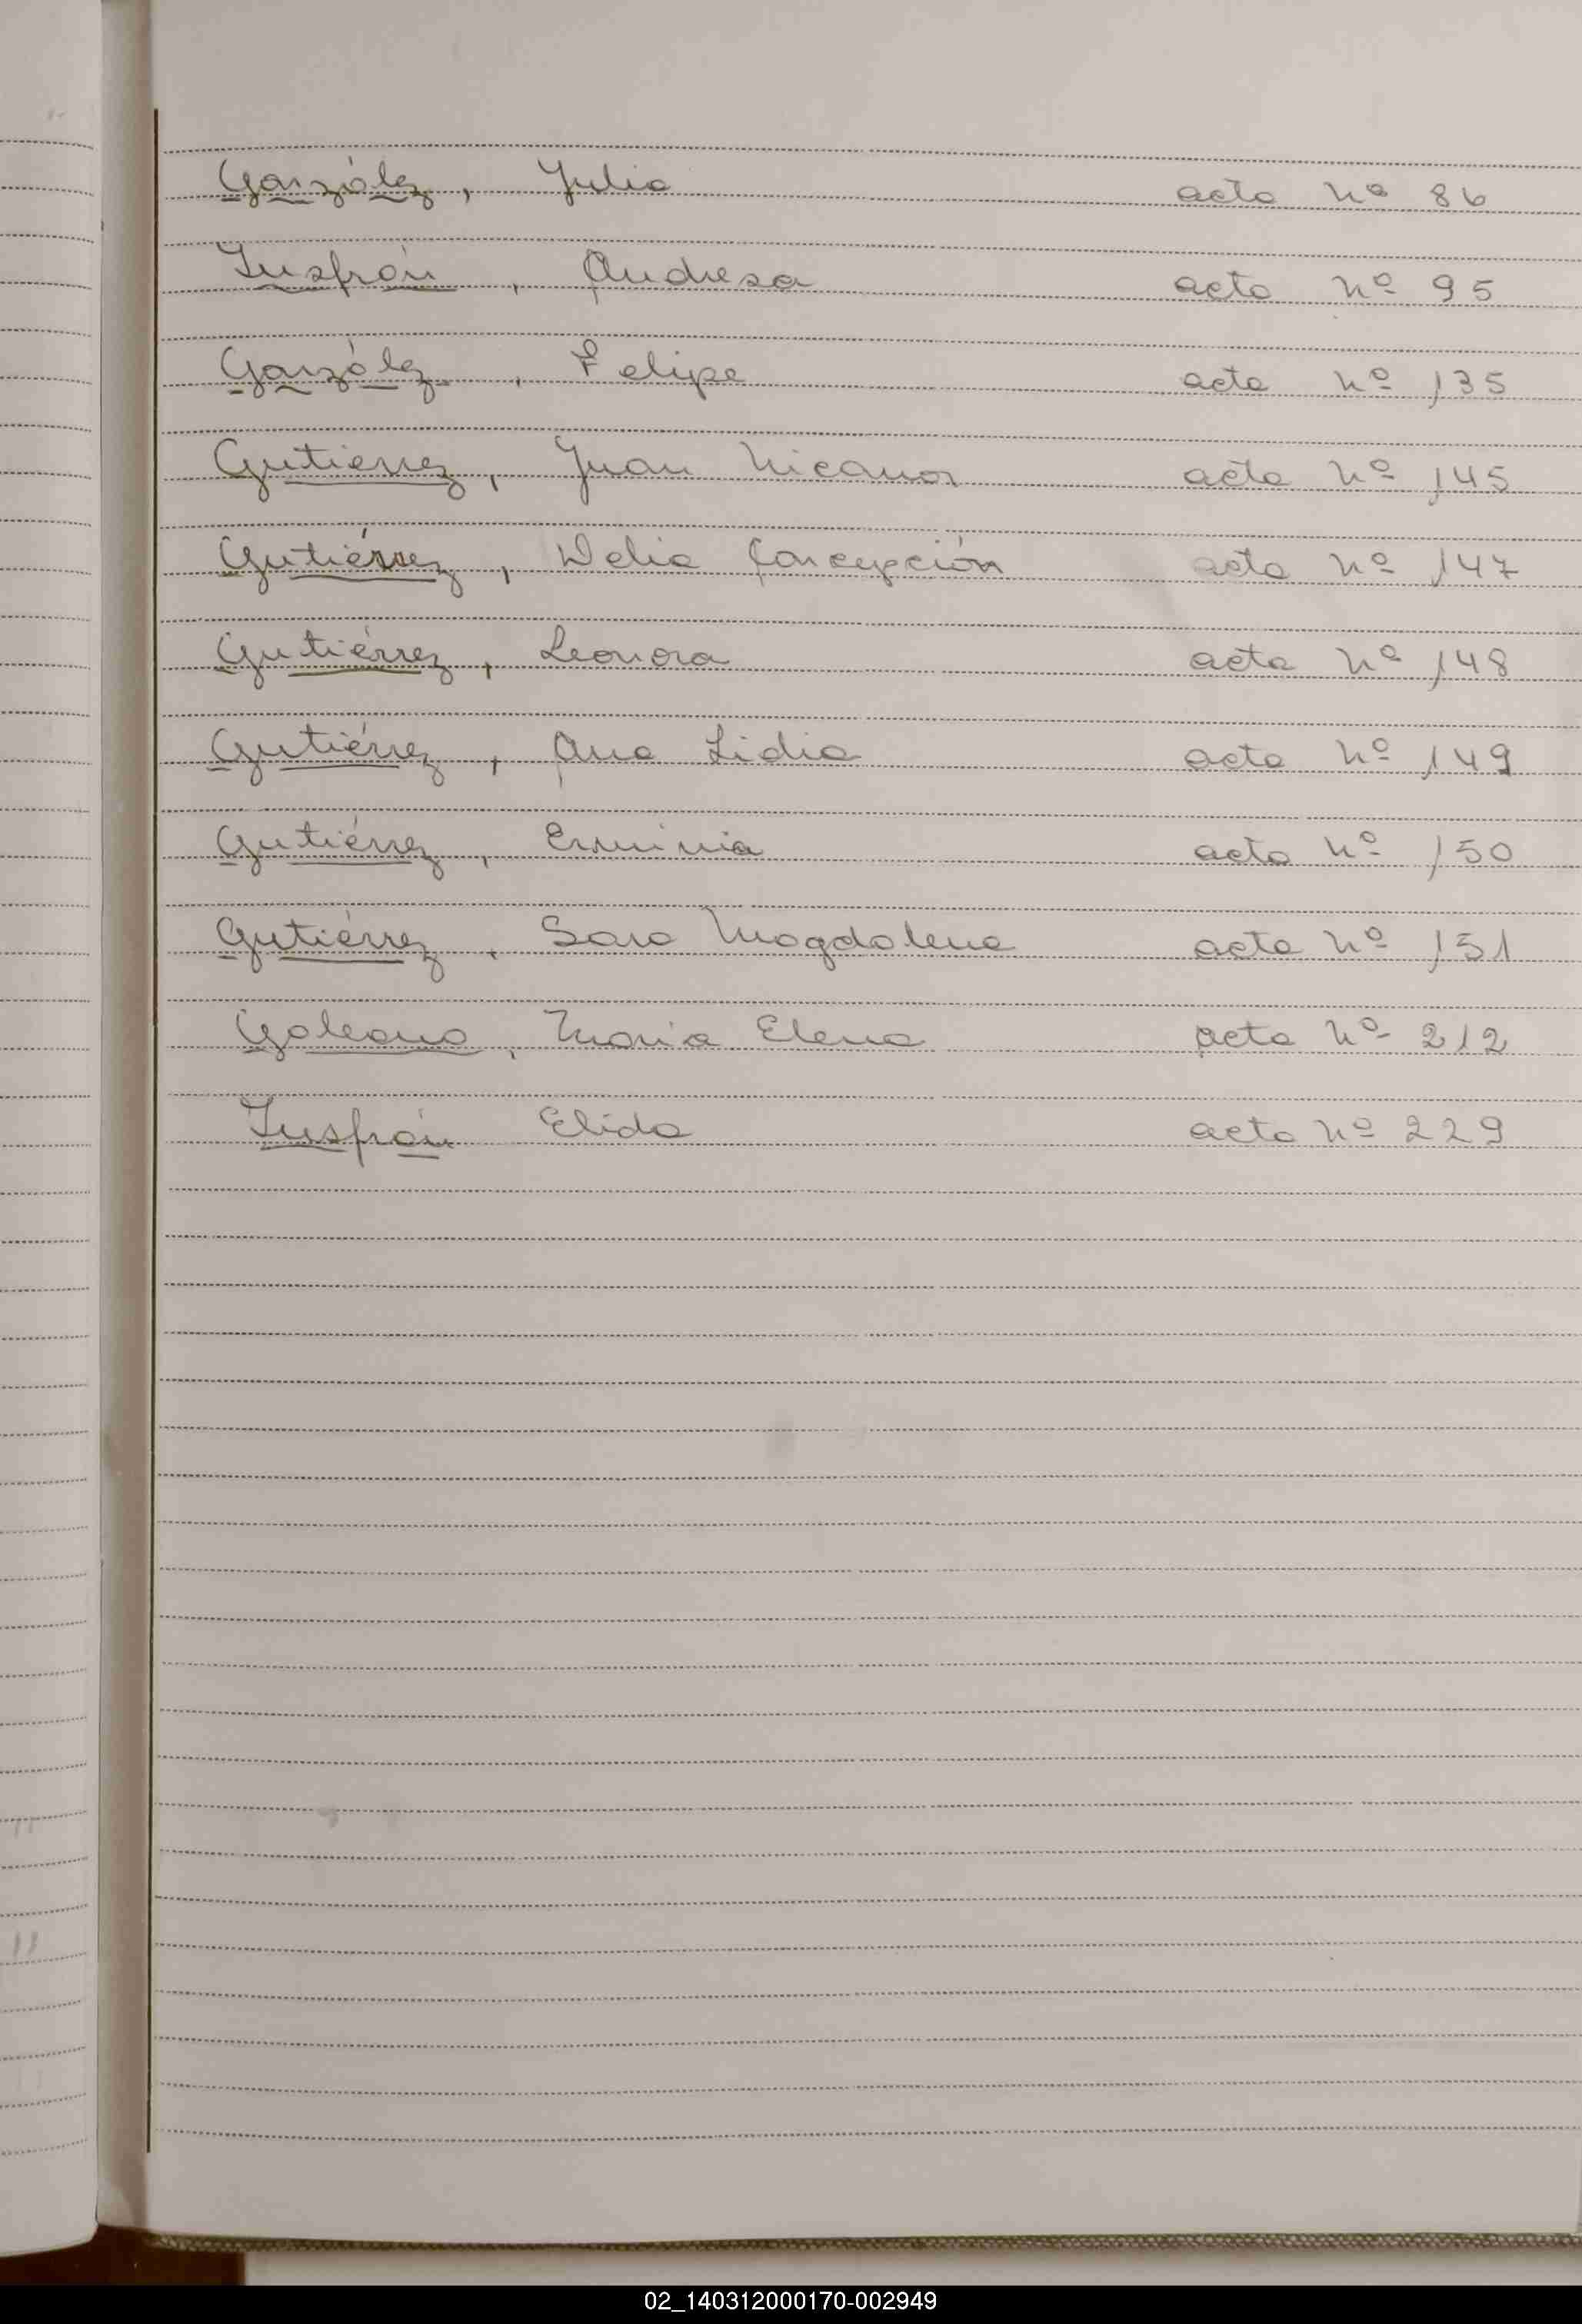 Garzólez, Julia acta nº 86
Insfrán, Andresa acta nº 95
Garzólez, Felipe acta nº 135
Gutiérrez, Juan Nicanor acta nº 145
Gutiérrez, Delia Concepción acta nº 147
Gutiérrez, Leonora acta nº 148
Gutiérrez, Ana Lidia acta nº 149
Gutiérrez, Erminia acta nº 150
Gutiérrez, Sara Magdalena acta nº 151
Galeano, María Elena acta nº 212
Insfrán Elida acta nº 229
02_140312000170-002949